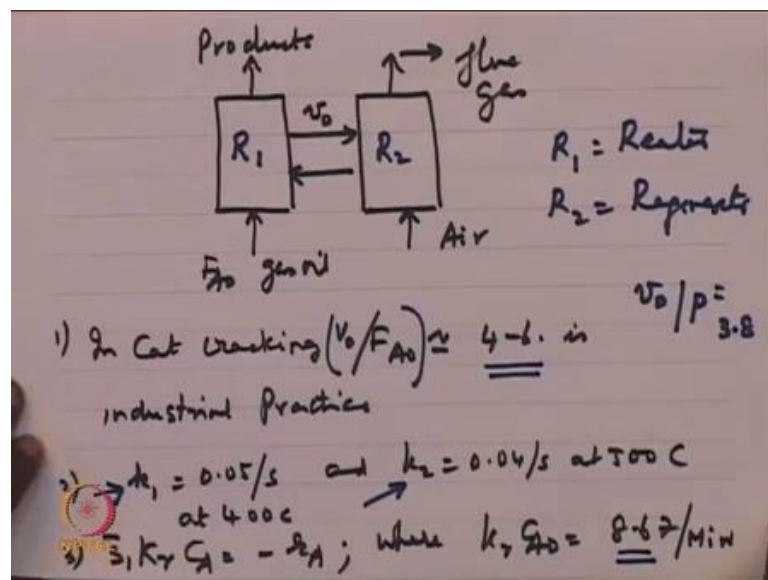 Products
flue
gas
v₀
R₁
R₂
R₁ = Reactor
R₂ = Regenerator
Air
F_A0 gas oil
v₀/P = 3.8
1) In Cat cracking (v₀/F_A0) ≈ 4-6. is
industrial Practice
2) k₁ = 0.05/s and k₂ = 0.04/s at 500 C
at 400 C
3) S₁ k_r C_A = - r_A ; where k_r C_A0 = 8.67/Min